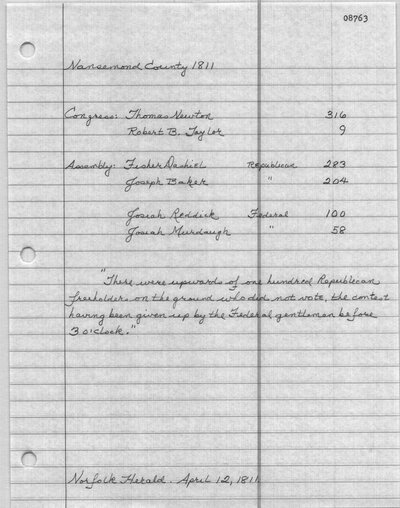 08763
Nansemond County 1811
Congress: Thomas Newton 316
Robert B. Taylor 9
Assembly: Fisher Dashiel Republican 283
Joseph Baker " 204
Josiah Reddick Federal 100
Josiah Murdaugh " 58
"There were upwards of one hundred Republican
freeholders on the ground who did not vote, the contest
having been given up by the Federal gentleman before
3 o'clock."
Norfolk Herald. April 12, 1811